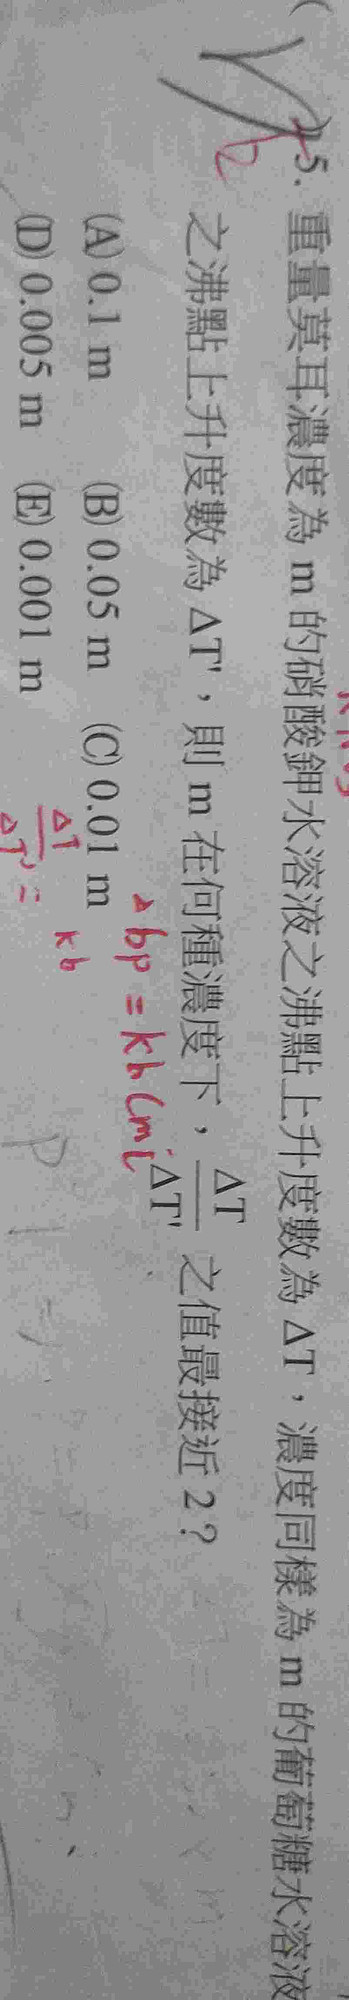 5. 重量莫耳濃度為 m 的硝酸鉀水溶液之沸點上升度數為 ΔT，濃度同樣為 m 的葡萄糖水溶液
之沸點上升度數為 ΔT'，則 m 在何種濃度下，ΔT/ΔT' 之值最接近 2？
(A) 0.1 m (B) 0.05 m (C) 0.01 m
(D) 0.005 m (E) 0.001 m
Δbp = kb Cm i
ΔT/ΔT' =
kb